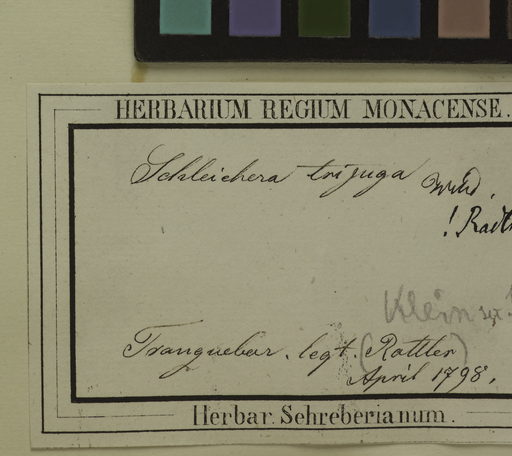 HERBARIUM REGIUM MONACENSE.
Schleichera trijuga Willd.
! Rottl
Klein
Tranquebar. legt. (Rottler)
April 1798.
Herbar. Schreberianum.